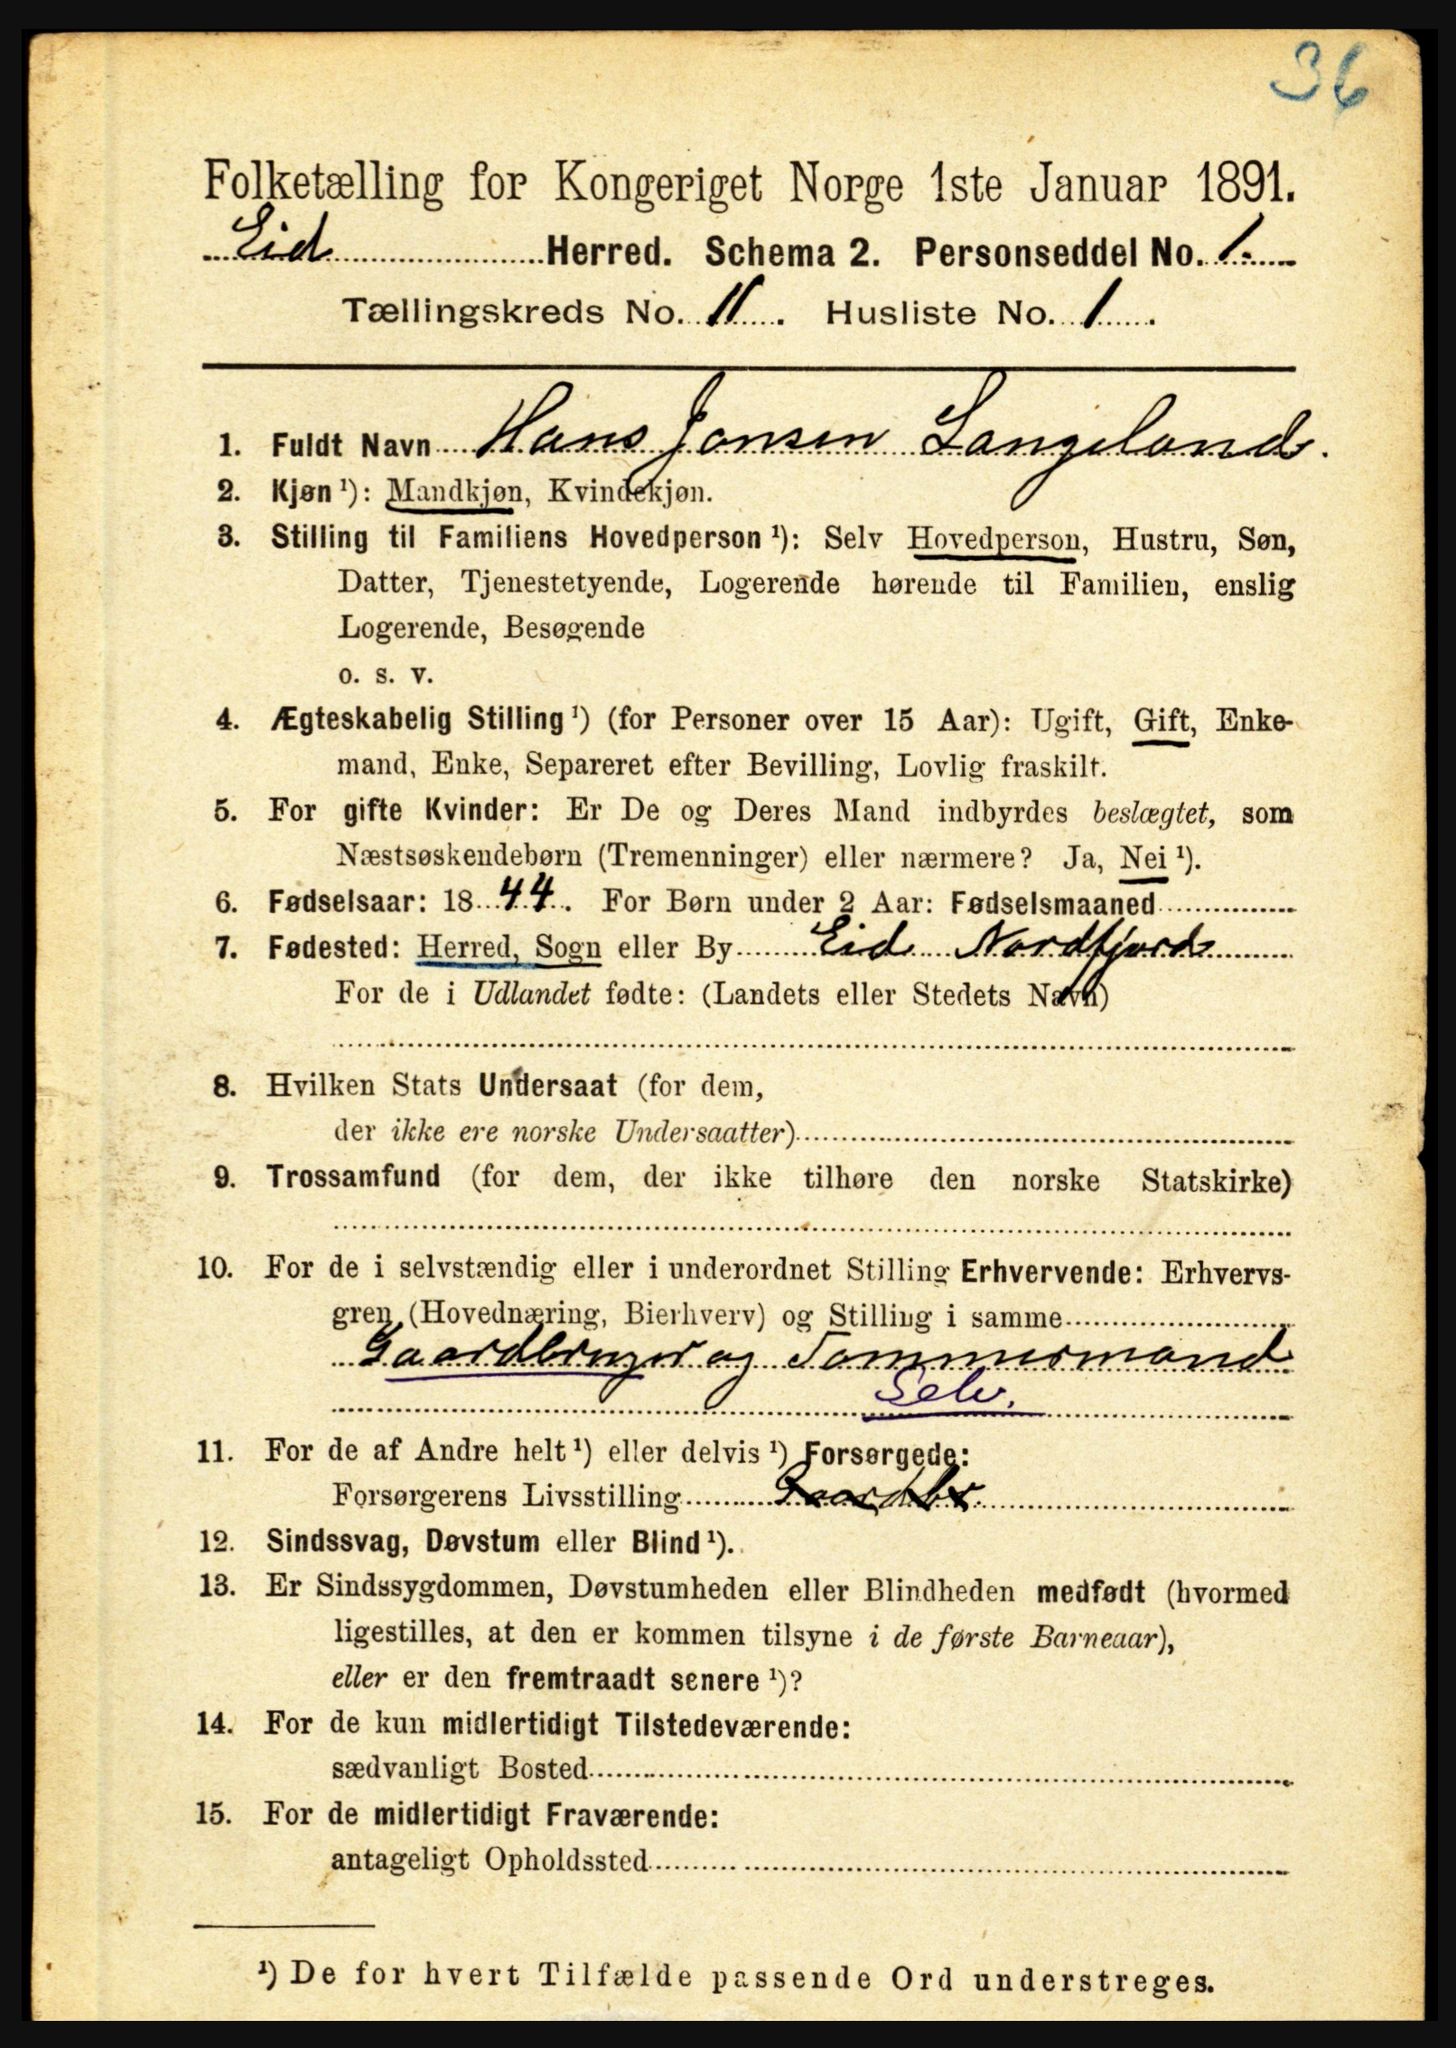 36
Folketælling for Kongeriget Norge 1ste Januar 1891.
Eid Herred. Schema 2. Personseddel No. 1.
Tællingskreds No. 11. Husliste No. 1.
1. Fuldt Navn Hans Jonsen Langeland.
2. Kjøn¹): Mandkjøn, Kvindekjøn.
3. Stilling til Familiens Hovedperson¹): Selv Hovedperson, Hustru, Søn,
Datter, Tjenestetyende, Logerende hørende til Familien, enslig
Logerende, Besøgende
o. s. v.
4. Ægteskabelig Stilling¹) (for Personer over 15 Aar): Ugift, Gift, Enke-
mand, Enke, Separeret efter Bevilling, Lovlig fraskilt.
5. For gifte Kvinder: Er De og Deres Mand indbyrdes beslægtet, som
Næstsøskendebørn (Tremenninger) eller nærmere? Ja, Nei¹).
6. Fødselsaar: 1844. For Børn under 2 Aar: Fødselsmaaned
7. Fødested: Herred, Sogn eller By Eid Nordfjord
For de i Udlandet fødte: (Landets eller Stedets Navn)
8. Hvilken Stats Undersaat (for dem,
der ikke ere norske Undersaatter)
9. Trossamfund (for dem, der ikke tilhøre den norske Statskirke)
10. For de i selvstændig eller i underordnet Stilling Erhvervende: Erhvervs-
gren (Hovednæring, Bierhverv) og Stilling i samme
Gaardbruger og Tommermand
Selv.
11. For de af Andre helt¹) eller delvis¹) Forsørgede:
Forsørgerens Livsstilling Gaardbr.
12. Sindssvag, Døvstum eller Blind¹).
13. Er Sindssygdommen, Døvstumheden eller Blindheden medfødt (hvormed
ligestilles, at den er kommen tilsyne i de første Barneaar),
eller er den fremtraadt senere¹)?
14. For de kun midlertidigt Tilstedeværende:
sædvanligt Bosted
15. For de midlertidigt Fraværende:
antageligt Opholdssted
¹) De for hvert Tilfælde passende Ord understreges.